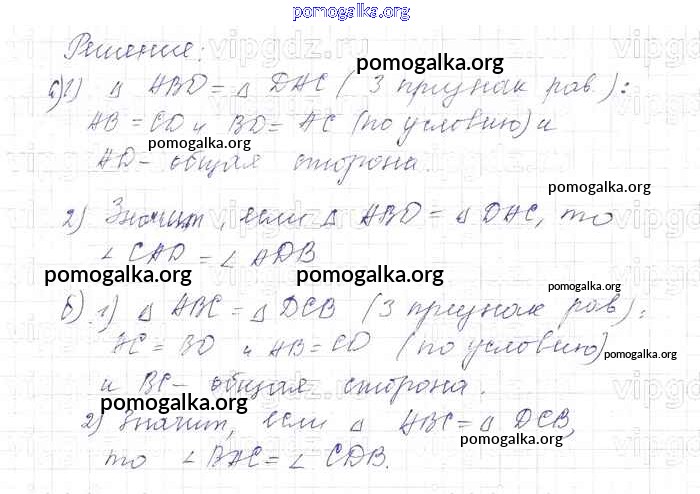 pomogalka.org
Решение:
pomogalka.org
а) 1) Δ ABD = Δ DAC (3 признак рав.):
AB = CD и BD = AC (по условию) и
pomogalka.org
AD – общая сторона.
pomogalka.org
2) Значит, если Δ ABD = Δ DAC, то
∠ CAD = ∠ ADB
pomogalka.org pomogalka.org
pomogalka.org
б) 1) Δ ABC = Δ DCB (3 признак рав):
AC = BD и AB = CD (по условию)
pomogalka.org
и BC – общая сторона.
pomogalka.org
2) Значит, если Δ ABC = Δ DCB,
pomogalka.org
то ∠ BAC = ∠ CDB.